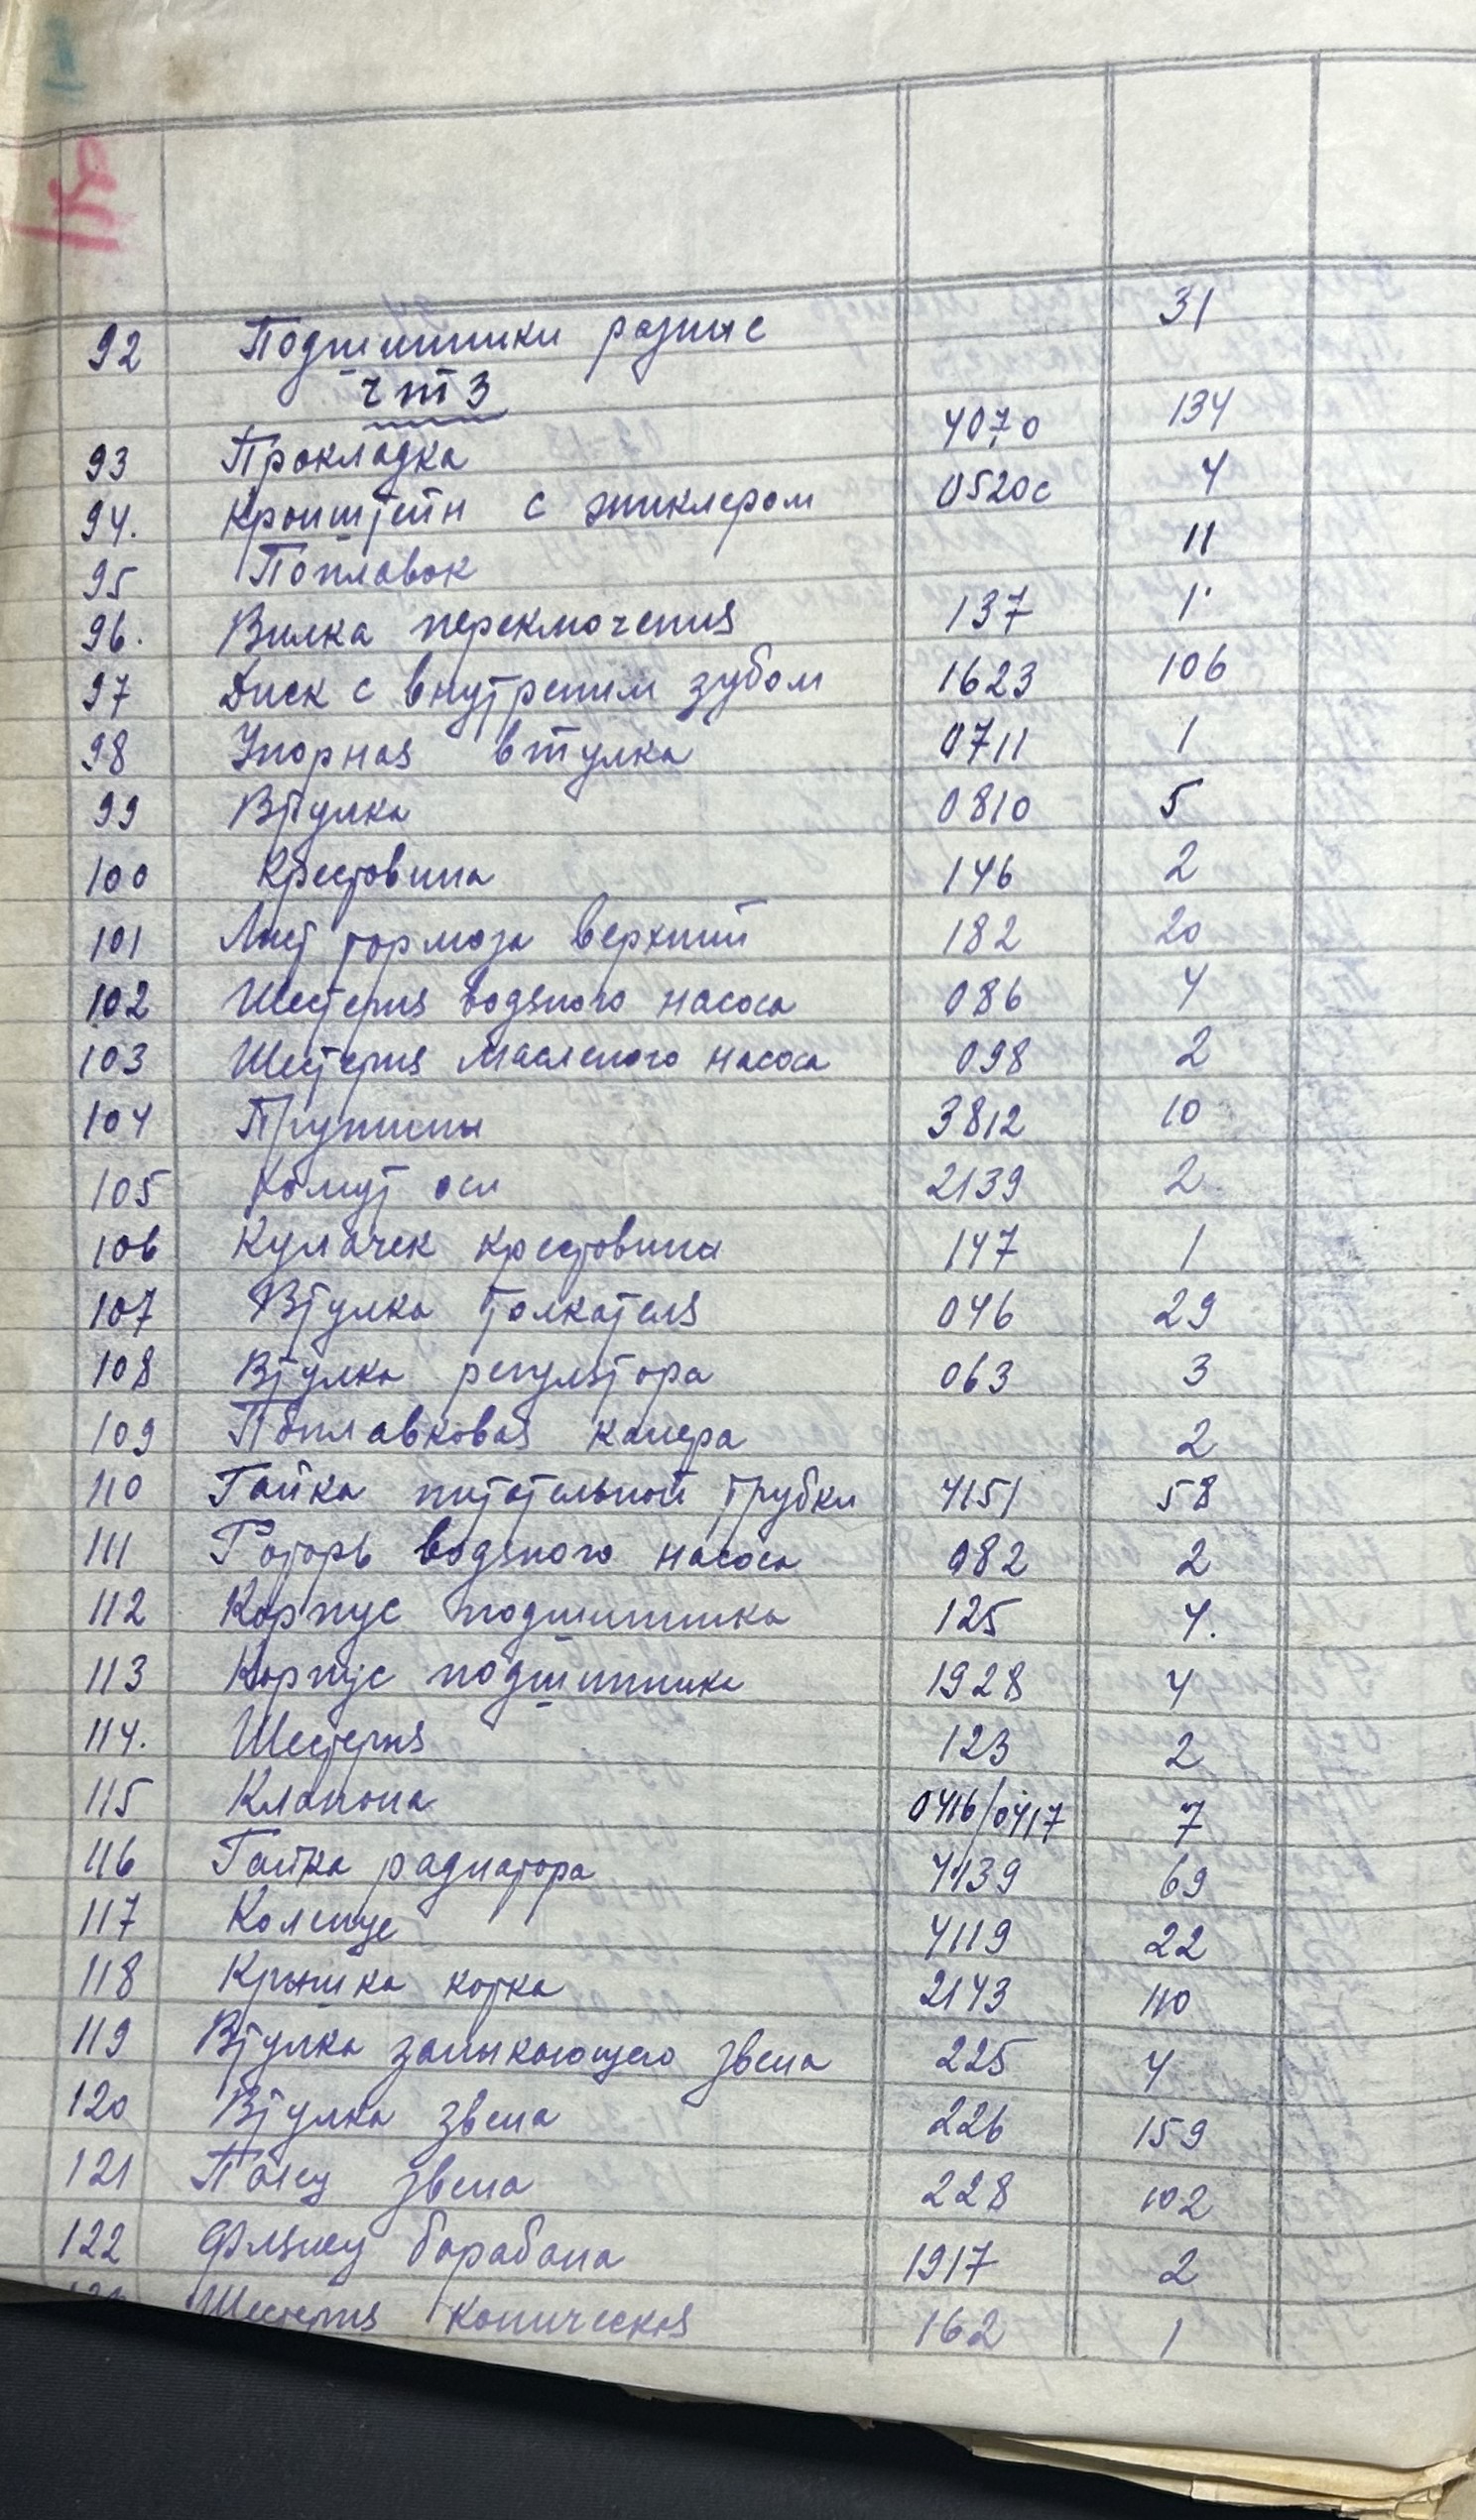 92 Подшипники разные 31
ЧТЗ
93 Прокладка 4070 134
94. Кронштейн с жиклером 0520с 4
95 Поплавок 11
96. Вилка переключения 137 1
97 Диск с внутреним зубом 1623 106
98 Упорная втулка 0711 1
99 Втулка 0810 5
100 Крестовина 146 2
101 Лист тормоза верхний 182 20
102 Шестерня водяного насоса 086 4
103 Шестерня масленого насоса 098 2
104 Пружины 3812 10
105 Хомут оси 2139 2
106 Кулачек крестовины 147 1
107 Втулка толкателя 046 29
108 Втулка регулятора 063 3
109 Поплавковая камера 2
110 Гайка питательной трубки 4151 58
111 Роторъ водяного насоса 082 2
112 Корпус подшипника 125 4.
113 Корпус подшипника 1928 4
114. Шестерня 123 2
115 Клапана 0416/0417 7
116 Гайка радиатора 4139 69
117 Колньце 4119 22
118 Крышка катка 2143 110
119 Втулка замыкающего звена 225 4
120 Втулка звена 226 159
121 Палец звена 228 102
122 Флянец барабана 1917 2
Шестерня коническя 162 1